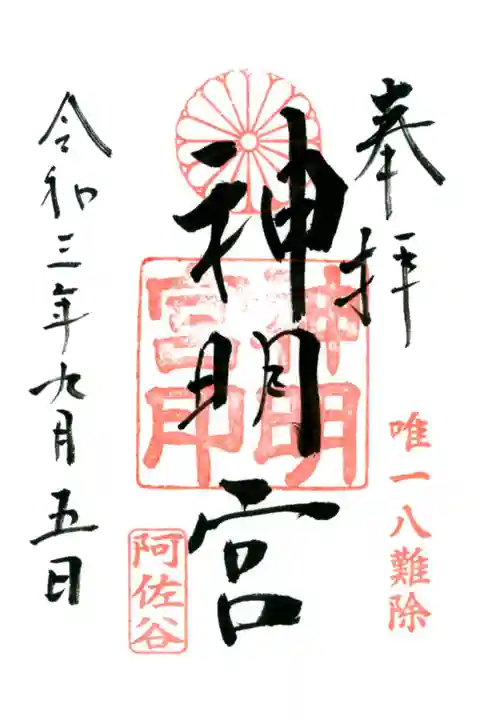 奉拝
唯一八難除
神明宮
神明宮印
阿佐谷
令和三年九月五日